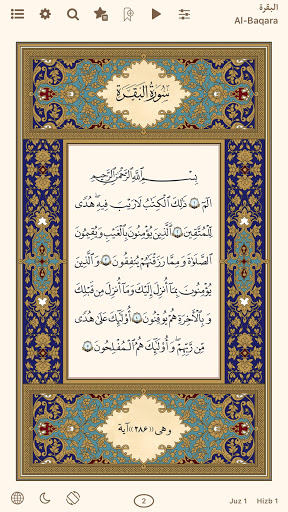 البقرة
Al-Baqara
سُورَةُ الْبَقَرَةِ
بِسْمِ اللَّهِ الرَّحْمَٰنِ الرَّحِيمِ
الٓمٓ ﴿١﴾ ذَٰلِكَ الْكِتَابُ لَا رَيْبَ ۛ فِيهِ ۛ هُدًى
لِّلْمُتَّقِينَ ﴿٢﴾ الَّذِينَ يُؤْمِنُونَ بِالْغَيْبِ وَيُقِيمُونَ
الصَّلَوٰةَ وَمِمَّا رَزَقْنَٰهُمْ يُنفِقُونَ ﴿٣﴾ وَالَّذِينَ
يُؤْمِنُونَ بِمَآ أُنزِلَ إِلَيْكَ وَمَآ أُنزِلَ مِن قَبْلِكَ
وَبِالْءَاخِرَةِ هُمْ يُوقِنُونَ ﴿٤﴾ أُو۟لَٰٓئِكَ عَلَىٰ هُدًى
مِّن رَّبِّهِمْ ۖ وَأُو۟لَٰٓئِكَ هُمُ الْمُفْلِحُونَ ﴿٥﴾
وهى ((٢٨٦)) آية
2
Juz 1
Hizb 1